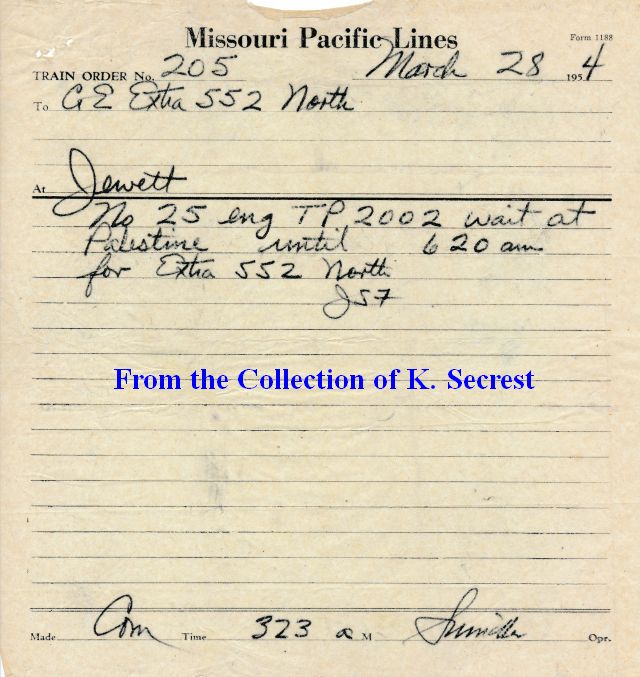 Missouri Pacific Lines
Form 1188
TRAIN ORDER No. 205 March 28 1954
To C&E Extra 552 North
At Jewett
No 25 eng T.P. 2002 wait at
Palestine until 620 am
for Extra 552 North
JS7
From the Collection of K. Secrest
Made Com Time 323 a M Opr.